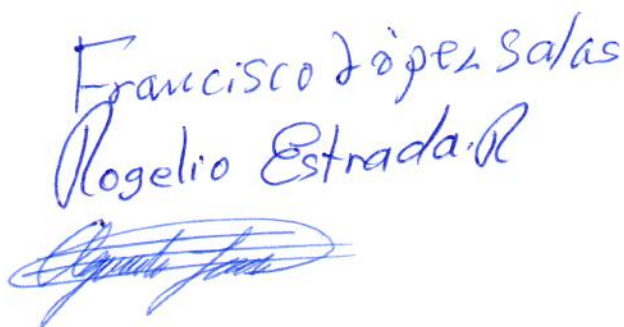 Francisco López Salas
Rogelio Estrada.R